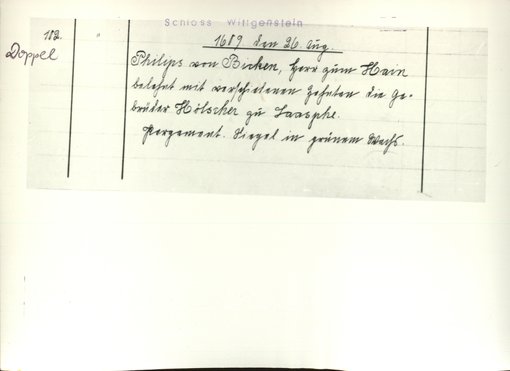 Schloss Wittgenstein
182.
Doppel
1689 den 26. Aug.
Philips von Bicken, Herr zum Hain
belehnt mit verschiedenen Zehnten die Ge-
brüder Hölscher zu Laasphe.
Pergament. Siegel in grünem Wachs.